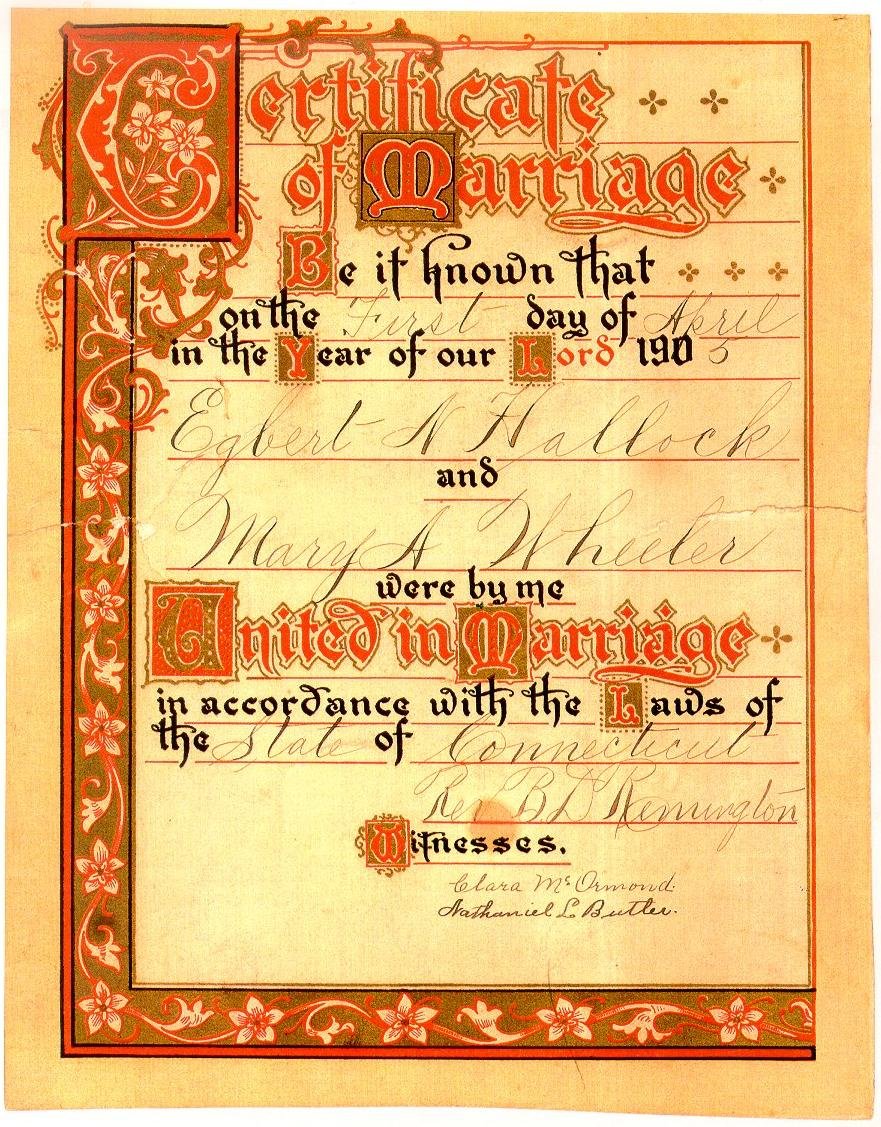 Certificate
of Marriage
Be it known that
on the First day of April
in the Year of our Lord 1905
Egbert N Hallock
and
Mary A Wheeler
were by me
United in Marriage
in accordance with the Laws of
the State of Connecticut
Rev B D Remington
Witnesses.
Clara McOrmond.
Nathaniel L Butler.